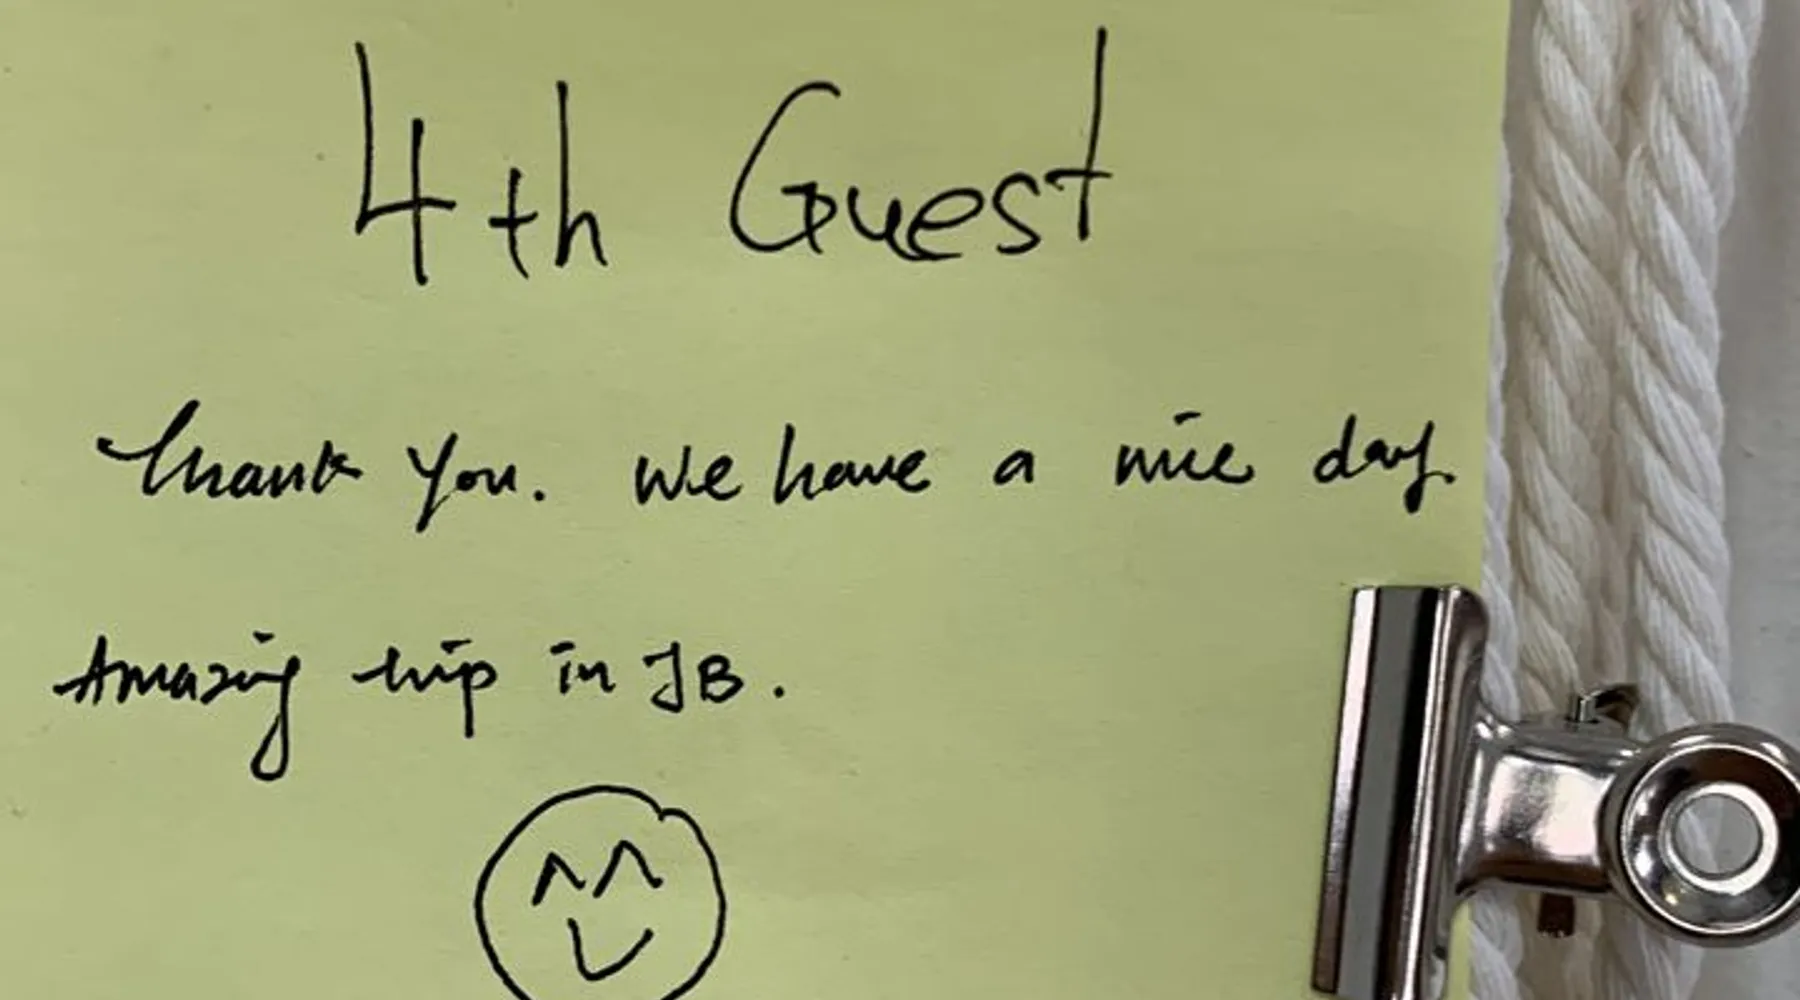 4th Guest
Thank you. We have a nice day.
Amazing trip in JB.